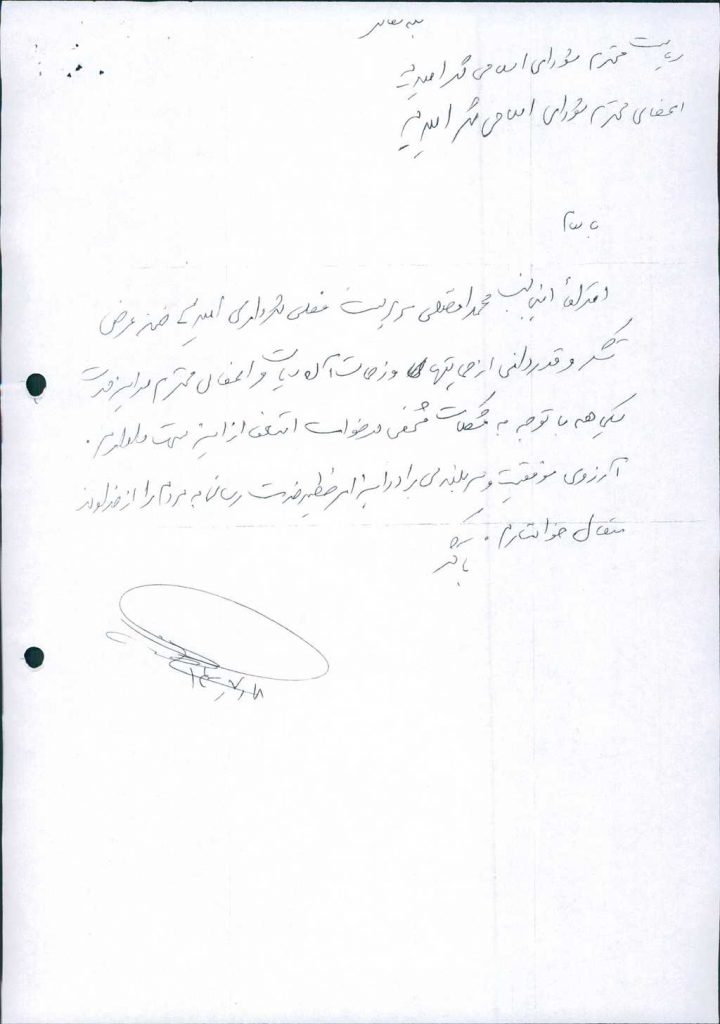 بسمه تعالی
ریاست محترم شورای اسلامی شهر امیدیه
اعضای محترم شورای اسلامی شهر امیدیه
با سلام
احتراماً اینجانب محمد سرپرست فعلی شهرداری امیدیه ضمن عرض
تشکر و قدردانی از حمایتها و زحمات آن ریاست و اعضای محترم در این مدت
یکی هه با توجه به مشکلات شخصی درخواست استعفا از این سمت را دارم.
آرزوی موفقیت و سربلندی را در این امر خطیر خدمت رسانی به مردم را از خداوند
متعال خواستارم.
باتشکر